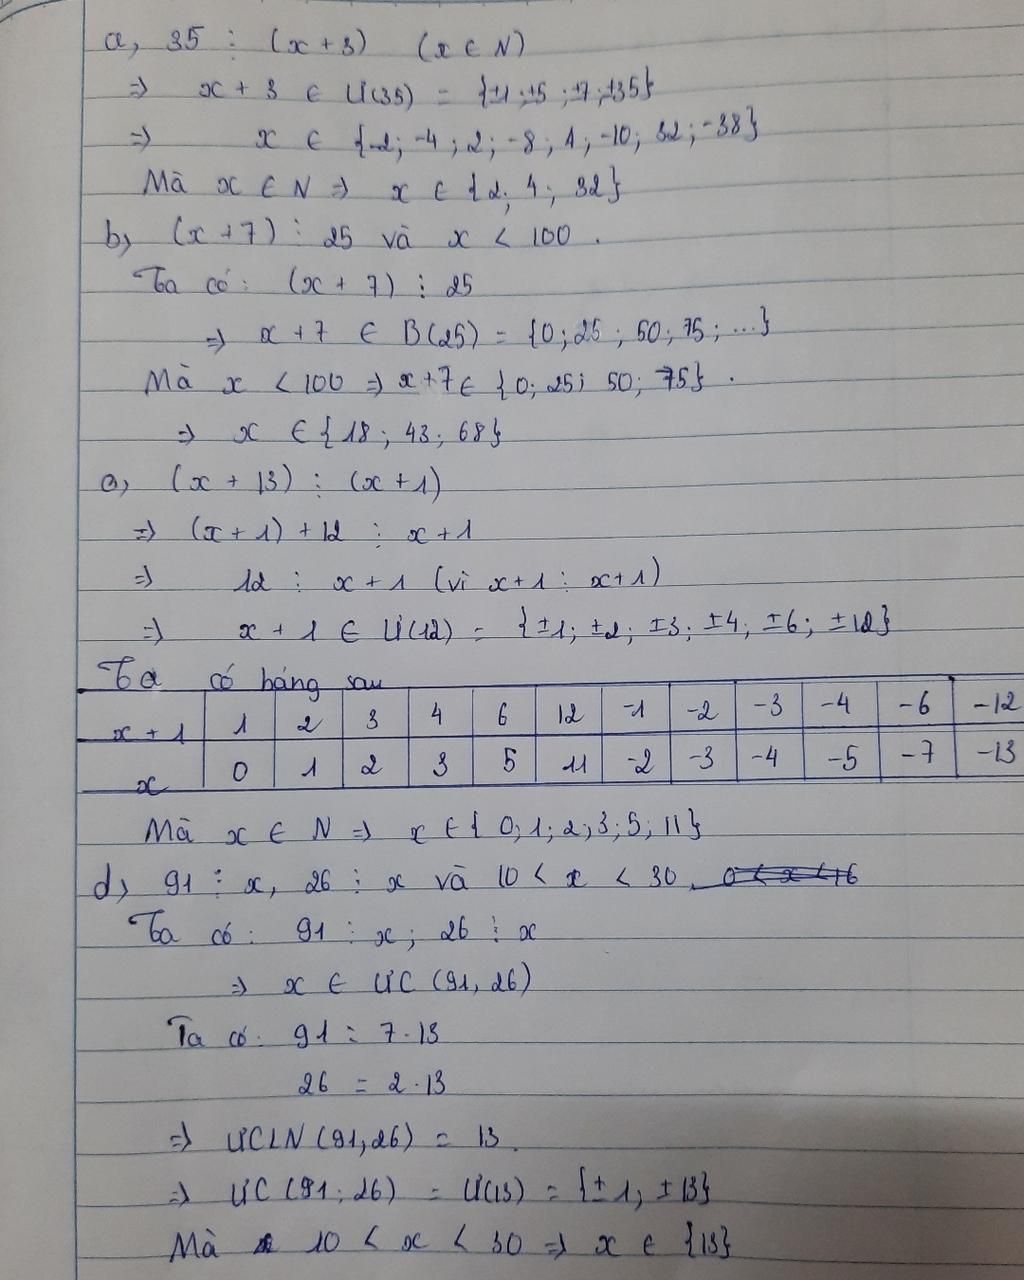 a, 35 ⋮ (x + 3) (x ∈ N)
=> x + 3 ∈ Ư(35) = {±1; ±5; ±7; ±35}
=> x ∈ {-2; -4; 2; -8; 1; -10; 32; -38}
Mà x ∈ N => x ∈ {2; 4; 32}
b, (x + 7) ⋮ 25 và x < 100.
Ta có: (x + 7) ⋮ 25
=> x + 7 ∈ B(25) = {0; 25; 50; 75; ...}
Mà x < 100 => x+7 ∈ {0; 25; 50; 75}.
=> x ∈ {18; 43; 68}
c, (x + 13) ⋮ (x + 1)
=> (x + 1) + 12 ⋮ x + 1
=> 12 ⋮ x + 1 (vì x + 1 ⋮ x + 1)
=> x + 1 ∈ Ư(12) = {±1; ±2; ±3; ±4; ±6; ±12}
Ta có bảng sau
x + 1 1 2 3 4 6 12 -1 -2 -3 -4 -6 -12
x 0 1 2 3 5 11 -2 -3 -4 -5 -7 -13
Mà x ∈ N => x ∈ {0; 1; 2; 3; 5; 11}
d, 91 ⋮ x, 26 ⋮ x và 10 < x < 30.
Ta có: 91 ⋮ x; 26 ⋮ x
=> x ∈ ƯC (91, 26)
Ta có: 91 = 7.13
26 = 2.13
=> ƯCLN (91, 26) = 13.
=> ƯC (91; 26) = Ư(13) = {±1, ±13}
Mà 10 < x < 30 => x ∈ {13}